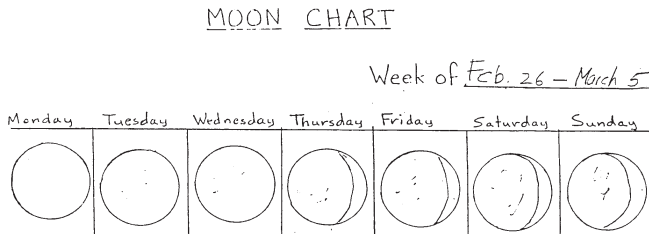 MOON CHART
Week of Feb. 26 – March 5
Monday Tuesday Wednesday Thursday Friday Saturday Sunday